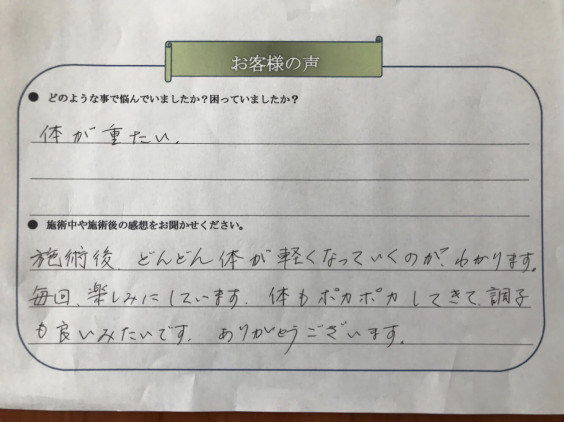 お客様の声
● どのような事で悩んでいましたか？困っていましたか？
体が重たい.
● 施術中や施術後の感想をお聞かせください。
施術後、どんどん体が軽くなっていくのが、わかります。
毎回、楽しみにしています. 体もポカポカしてきて、調子
も良いみたいです. ありがとうございます.